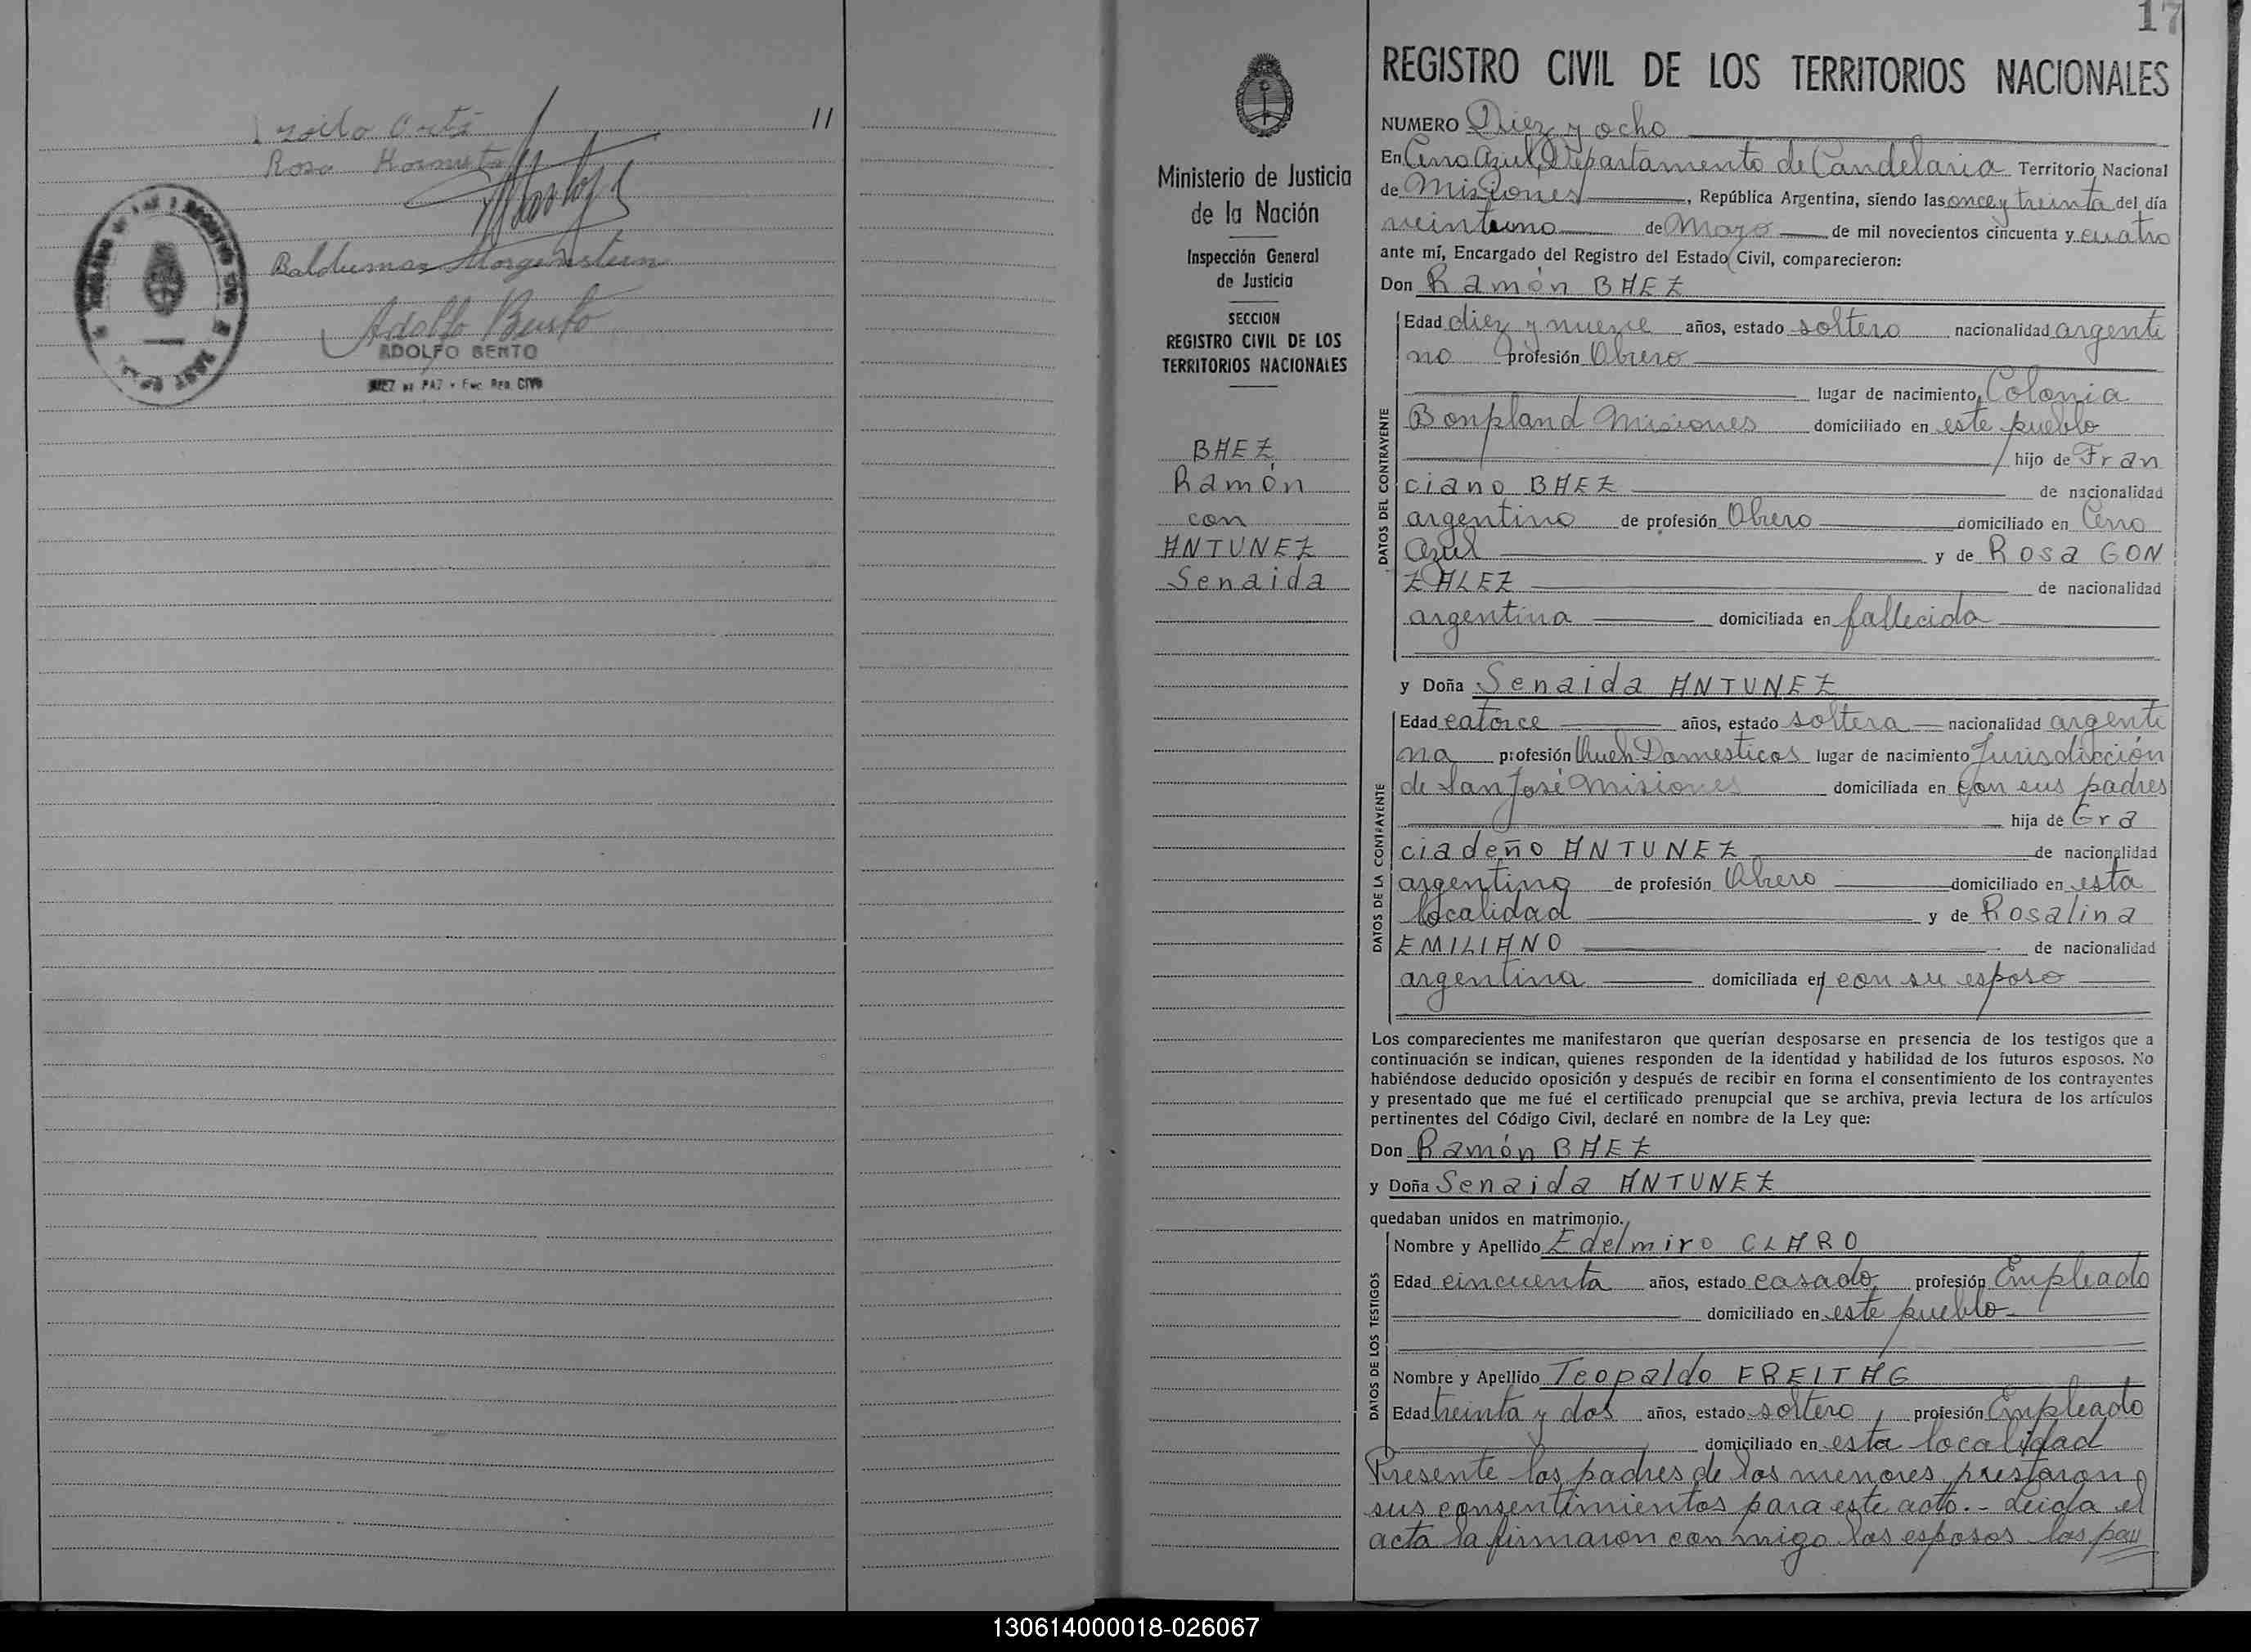 11
Rosa
Baldumar Morgenstern
Adolfo Bento
ADOLFO BENTO
JUEZ DE PAZ y Enc. REG. CIVIL
17
Ministerio de Justicia
de la Nación
Inspección General
de Justicia
SECCION
REGISTRO CIVIL DE LOS
TERRITORIOS NACIONALES
BAEZ
Ramón
con
ANTUNEZ
Senaida
REGISTRO CIVIL DE LOS TERRITORIOS NACIONALES
NUMERO Diez y ocho
En Cerro Azul, Departamento de Candelaria Territorio Nacional
de Misiones, República Argentina, siendo las once y treinta del día
veintiuno de Mayo de mil novecientos cincuenta y cuatro
ante mí, Encargado del Registro del Estado Civil, comparecieron:
Don Ramón BAEZ
DATOS DEL CONTRAYENTE
Edad diez y nueve años, estado soltero nacionalidad argenti
no profesión Obrero
lugar de nacimiento Colonia
Bonpland Misiones domiciliado en este pueblo
hijo de Fran
ciano BAEZ de nacionalidad
argentino de profesión Obrero domiciliado en Cerro
Azul y de Rosa GON
ZALEZ de nacionalidad
argentina domiciliada en fallecida
y Doña Senaida ANTUNEZ
DATOS DE LA CONTRAYENTE
Edad catorce años, estado soltera nacionalidad argenti
na profesión Queh. Domesticos lugar de nacimiento Jurisdicción
de San José Misiones domiciliada en con sus padres
hija de Gra
ciadeño ANTUNEZ de nacionalidad
argentino de profesión Obrero domiciliado en esta
localidad y de Rosalina
EMILIANO de nacionalidad
argentina domiciliada en con su esposo
Los comparecientes me manifestaron que querían desposarse en presencia de los testigos que a
continuación se indican, quienes responden de la identidad y habilidad de los futuros esposos. No
habiéndose deducido oposición y después de recibir en forma el consentimiento de los contrayentes
y presentado que me fué el certificado prenupcial que se archiva, previa lectura de los artículos
pertinentes del Código Civil, declaré en nombre de la Ley que:
Don Ramón BAEZ
y Doña Senaida ANTUNEZ
quedaban unidos en matrimonio.
DATOS DE LOS TESTIGOS
Nombre y Apellido Edelmiro CLARO
Edad cincuenta años, estado casado profesión Empleado
domiciliado en este pueblo
Nombre y Apellido Teopaldo FREITAG
Edad treinta y dos años, estado soltero, profesión Empleado
domiciliado en esta localidad
Presente los padres de los menores prestaron
sus consentimientos para este acto.- Leida el
acta la firmaron conmigo los esposos los pa
130614000018-026067